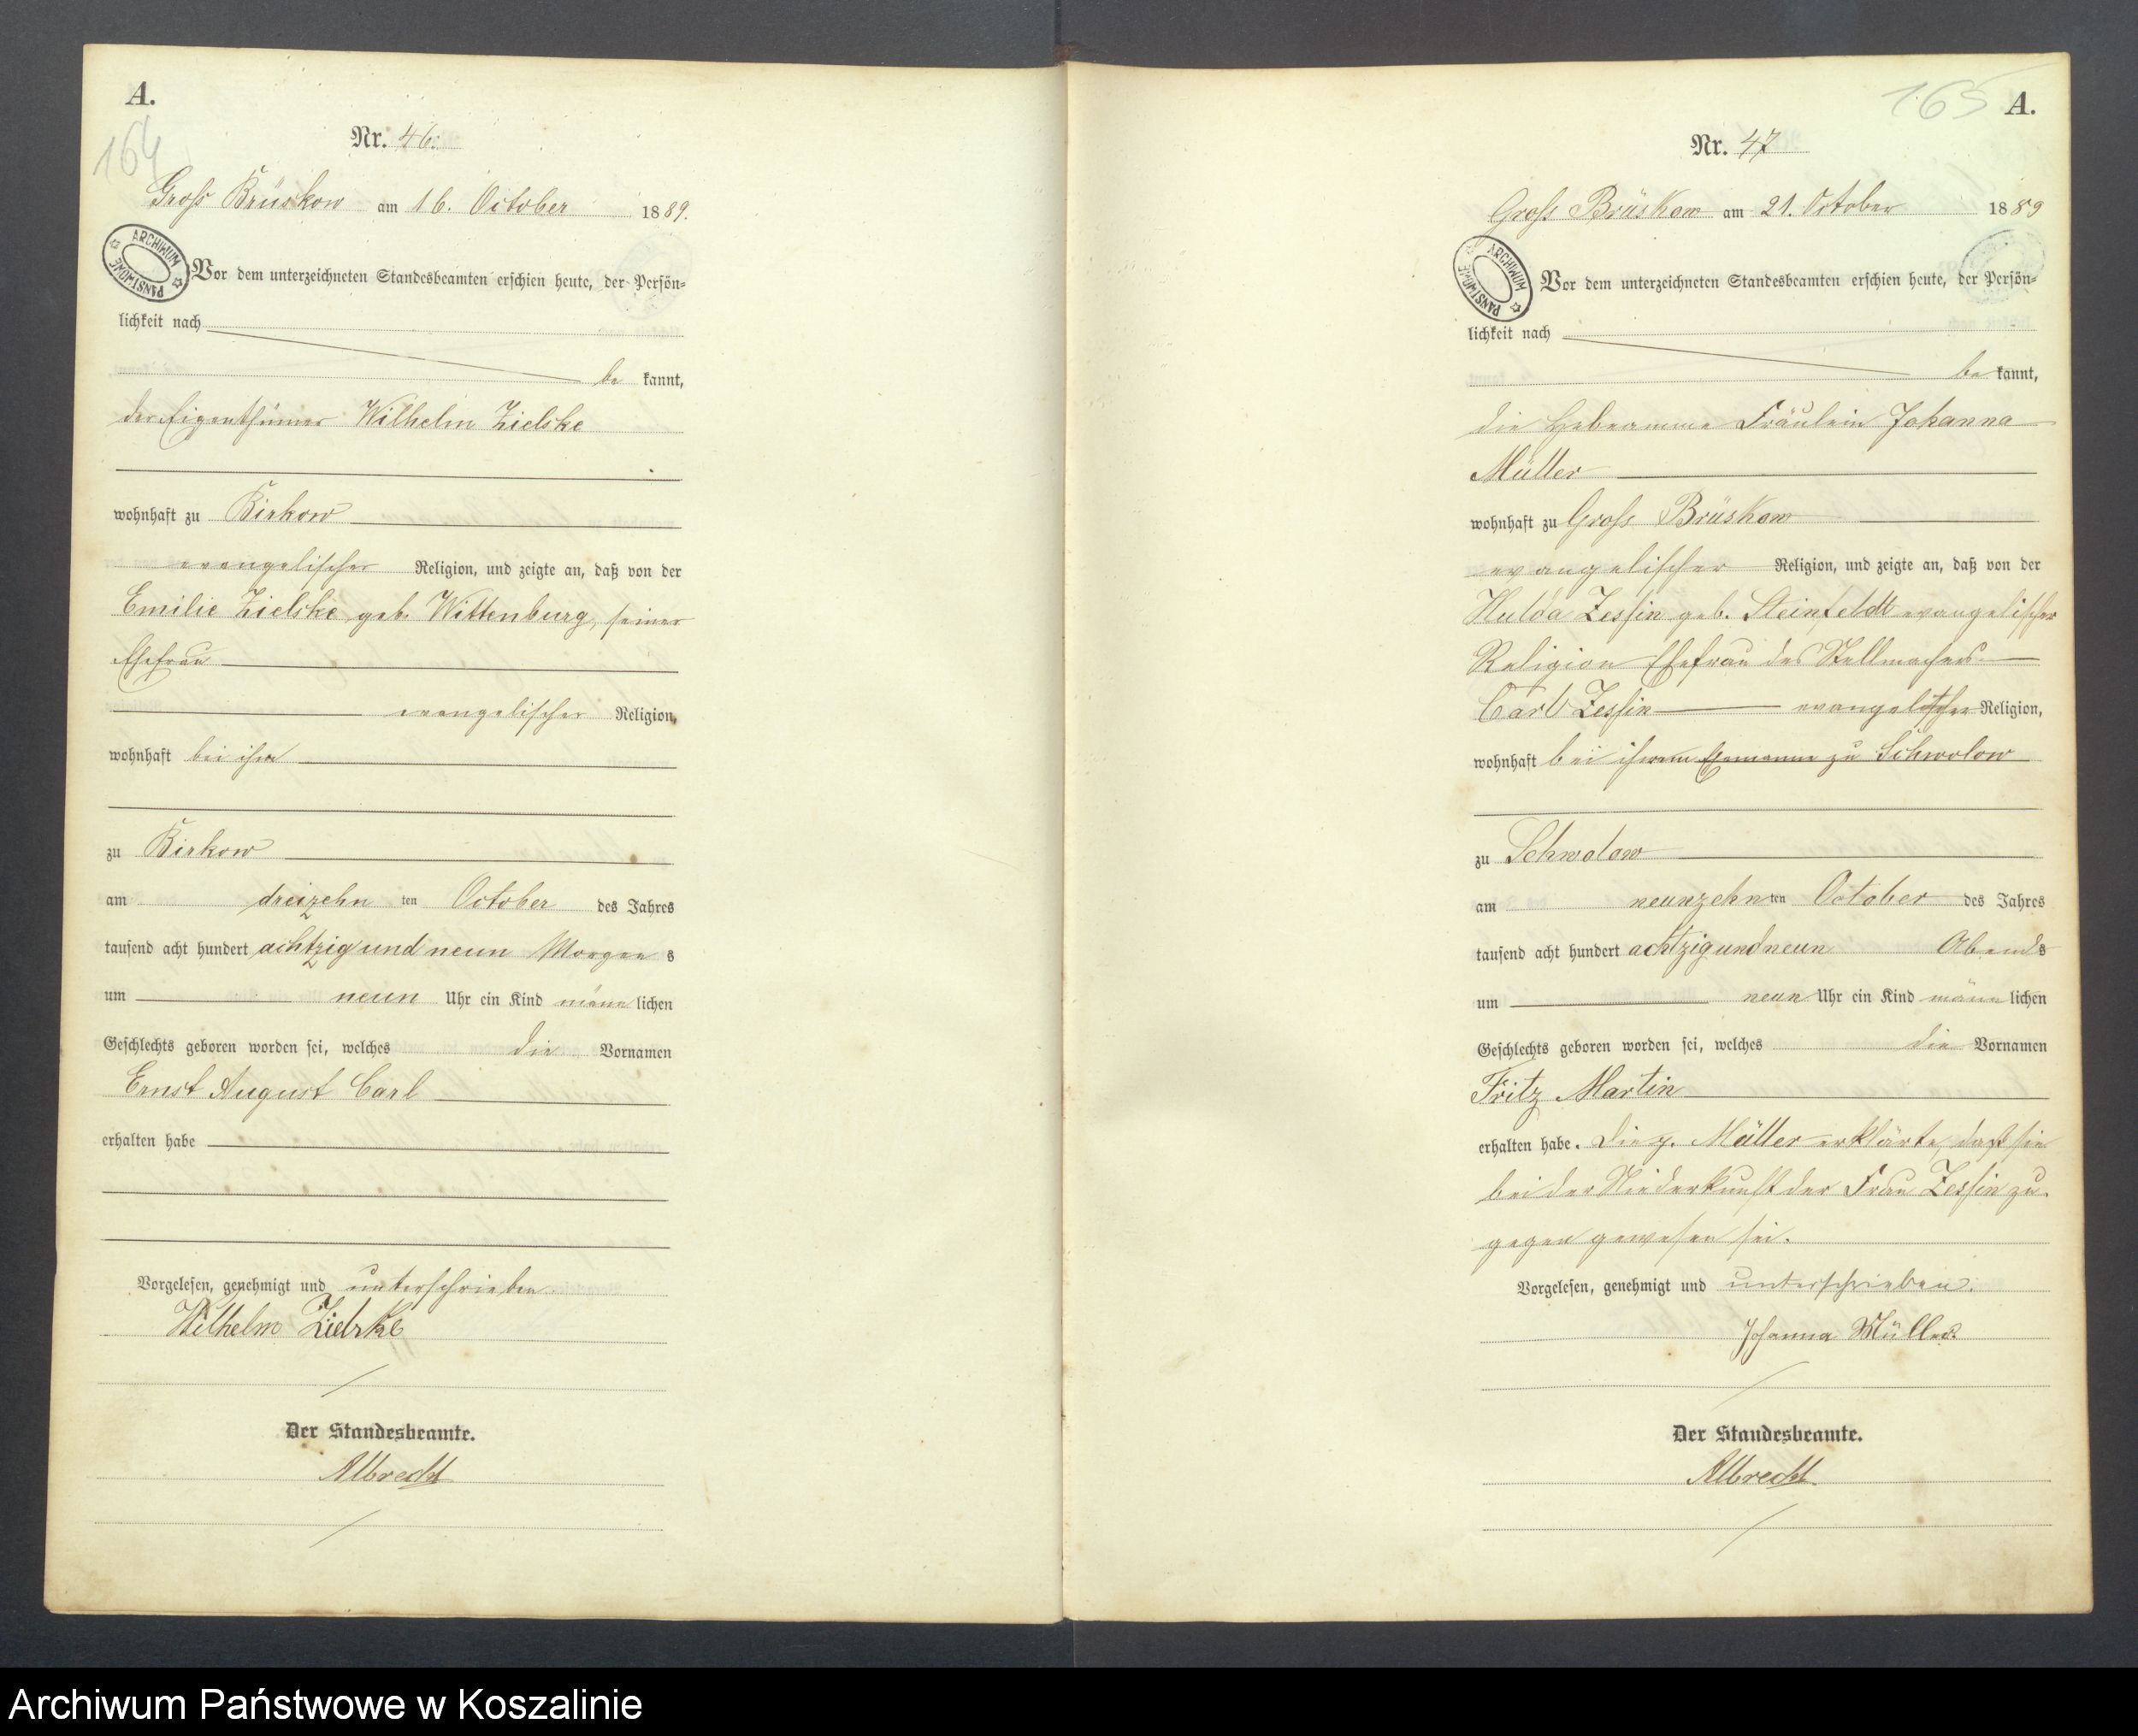 A.
164
Nr. 46.
Gross Brüskow am 16. October 1889.
ARCHIWUM PAŃSTWOWE
Vor dem unterzeichneten Standesbeamten erschien heute, der Persön-
lichkeit nach
be kannt,
der Eigenthümer Wilhelm Zielske
wohnhaft zu Birkow
evangelischer Religion, und zeigte an, daß von der
Emilie Zielske geb. Wittenburg, seiner
Ehefrau
evangelischer Religion,
wohnhaft bei ihm
zu Birkow
am dreizehn ten October des Jahres
tausend acht hundert achtzig und neun Morgen s
um neun Uhr ein Kind männ lichen
Geschlechts geboren worden sei, welches die Vornamen
Ernst August Carl
erhalten habe
Vorgelesen, genehmigt und unterschrieben.
Wilhelm Zielske
Der Standesbeamte.
Albrecht
165 A.
Nr. 47
Gross Brüskow am 21. October 1889
ARCHIWUM PAŃSTWOWE
Vor dem unterzeichneten Standesbeamten erschien heute, der Persön-
lichkeit nach
be kannt,
die Hebeamme Fräulein Johanna
Müller
wohnhaft zu Gross Brüskow
evangelischer Religion, und zeigte an, daß von der
Hulda Zessin geb. Steinfeldt evangelischer
Religion Ehefrau des Stellmachers
Carl Zessin evangelischer Religion,
wohnhaft bei ihrem Ehemanne zu Schwolow
zu Schwolow
am neunzehn ten October des Jahres
tausend acht hundert achtzig und neun Abends
um neun Uhr ein Kind männ lichen
Geschlechts geboren worden sei, welches die Vornamen
Fritz Martin
erhalten habe. Die p. Müller erklärte, daß sie
bei der Niederkunft der Frau Zessin zu-
gegen gewesen sei.
Vorgelesen, genehmigt und unterschrieben.
Johanna Müller.
Der Standesbeamte.
Albrecht
Archiwum Państwowe w Koszalinie